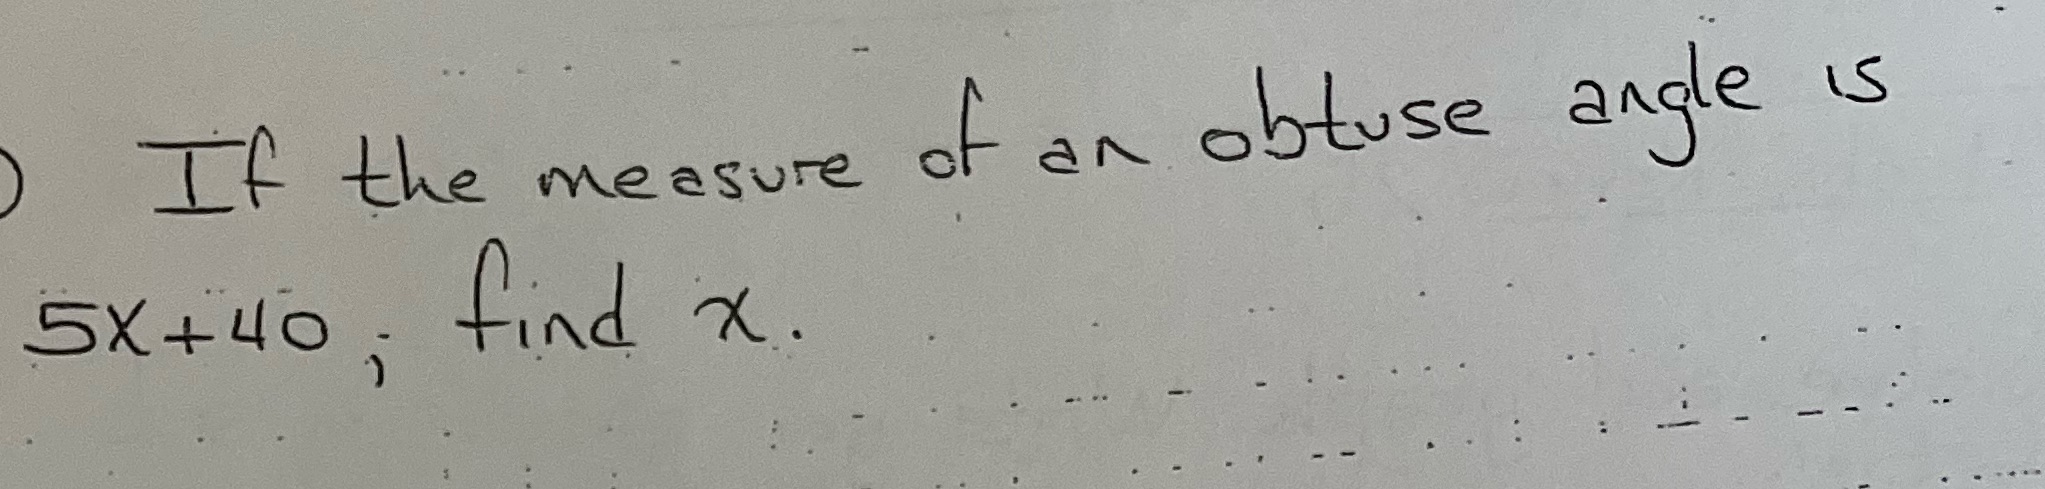 ) If the measure of an obtuse angle is
5x+40; find x.